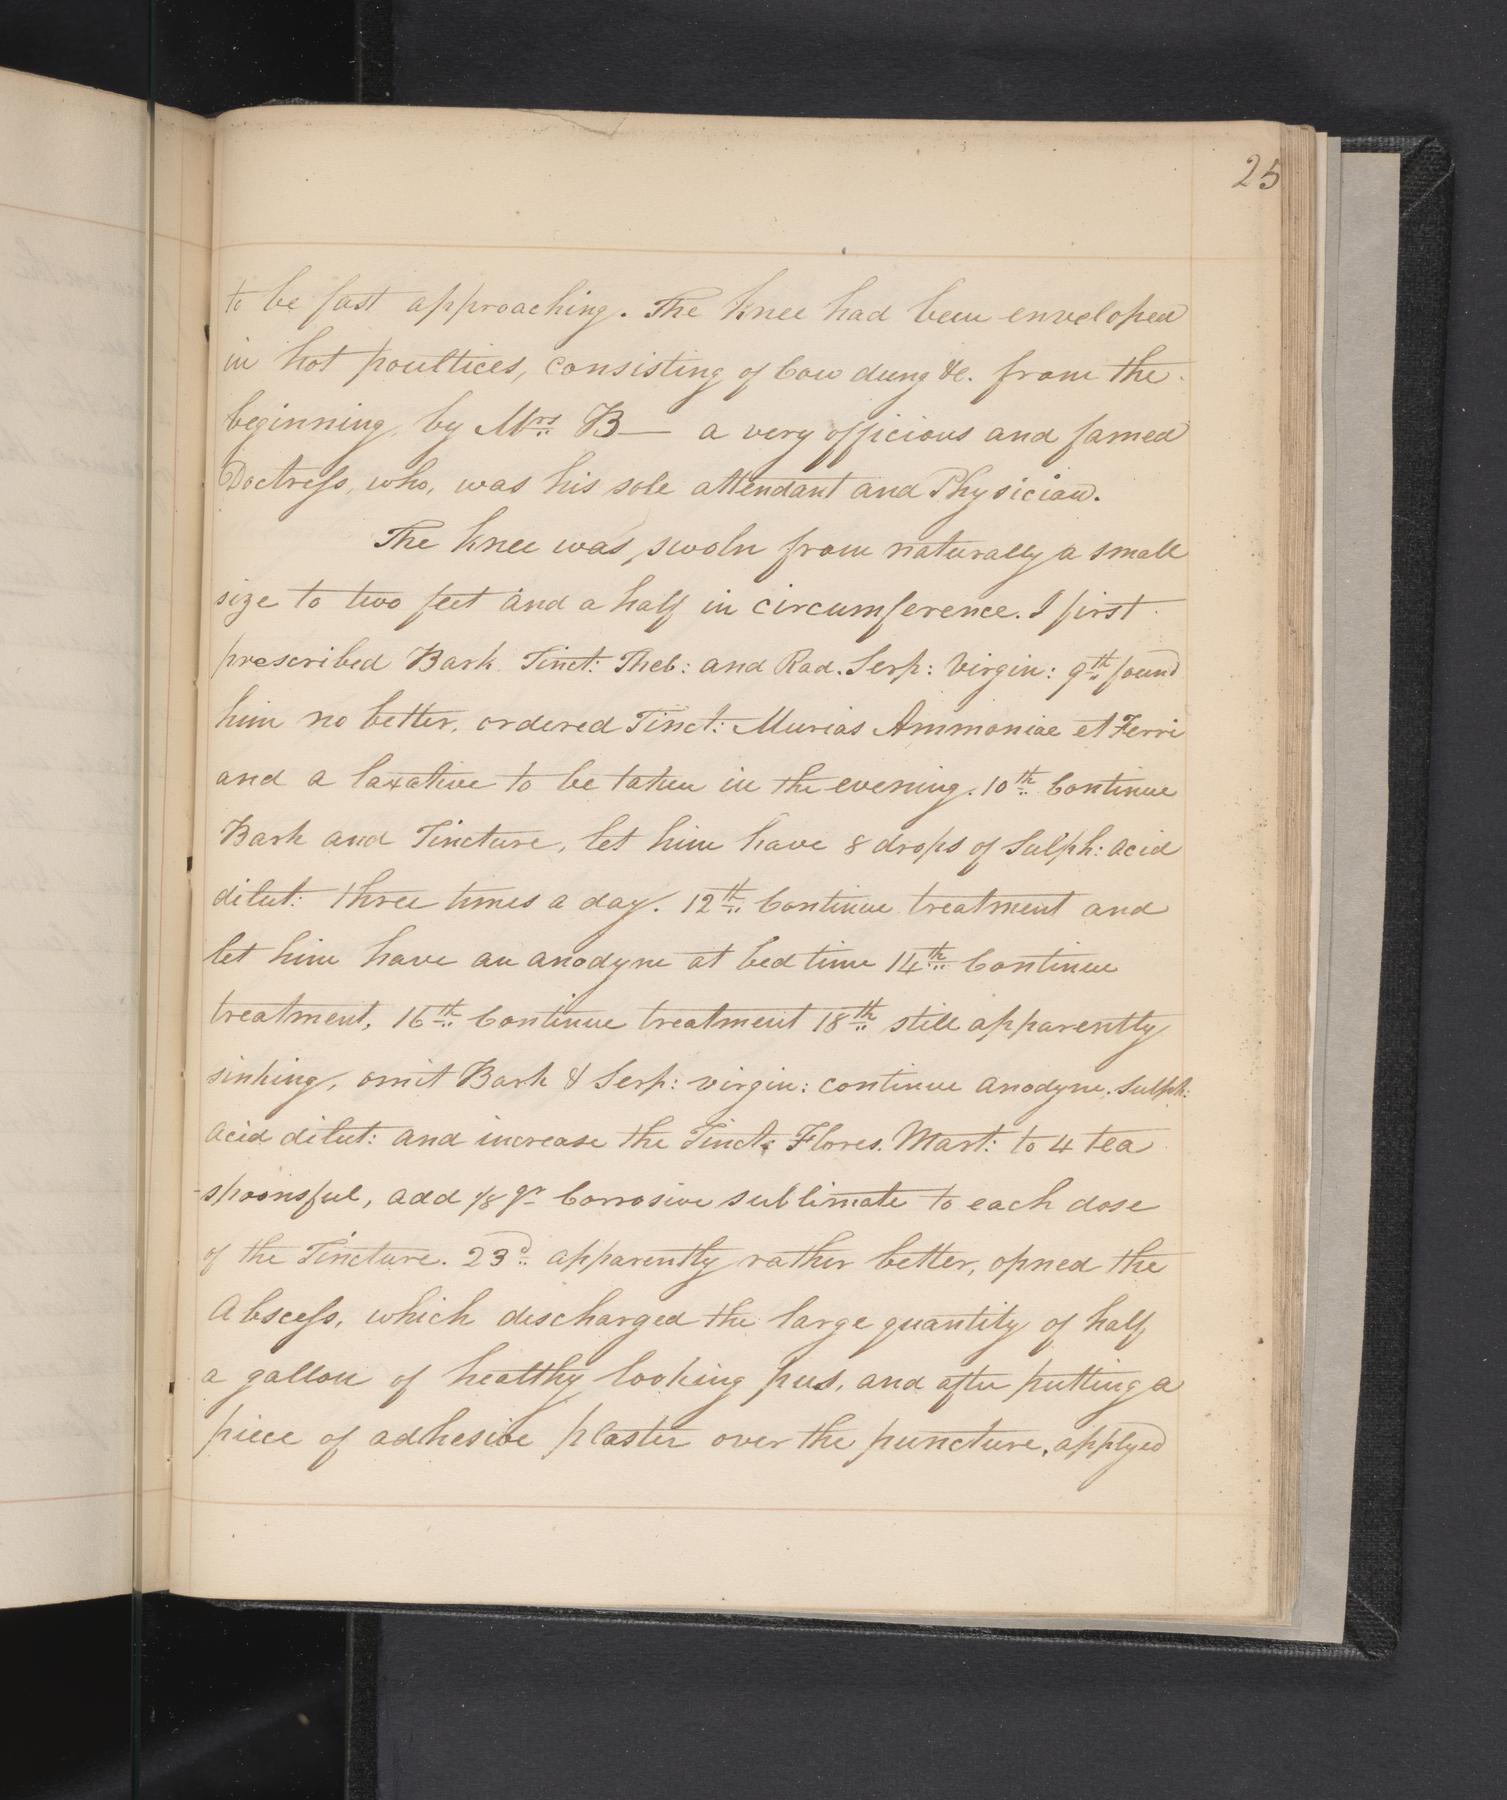 25
to be fast approaching. The knee had been enveloped
in hot poultices, consisting of Cow dung &c. from the
beginning, by Mrs B— a very officious and famed
Doctress, who, was his sole attendant and Physician.
The knee was, swoln from naturally a small
size to two feet and a half in circumference. I first
prescribed Bark Tinct: Theb: and Rad. Serp: Virgin: 9th found
him no better, ordered Tinct: Murias Ammoniae et Ferri
and a laxative to be taken in the evening. 10th Continue
Bark and Tincture, let him have 8 drops of Sulph: acid
dilut: three times a day. 12th Continue treatment and
let him have an anodyne at bed time 14th Continue
treatment, 16th Continue treatment 18th still apparently
sinking, omit Bark & Serp: virgin: continue anodyne. Sulph:
acid dilut: and increase the Tinct: Flores. Mart: to 4 tea
spoonsful, add 1/8 gr Corrosive sublimate to each dose
of the Tincture. 23d apparently rather better, opned the
Abscess, which discharged the large quantity of half
a gallon of healthy looking pus, and after putting a
piece of adhesive plaster over the puncture, applyed